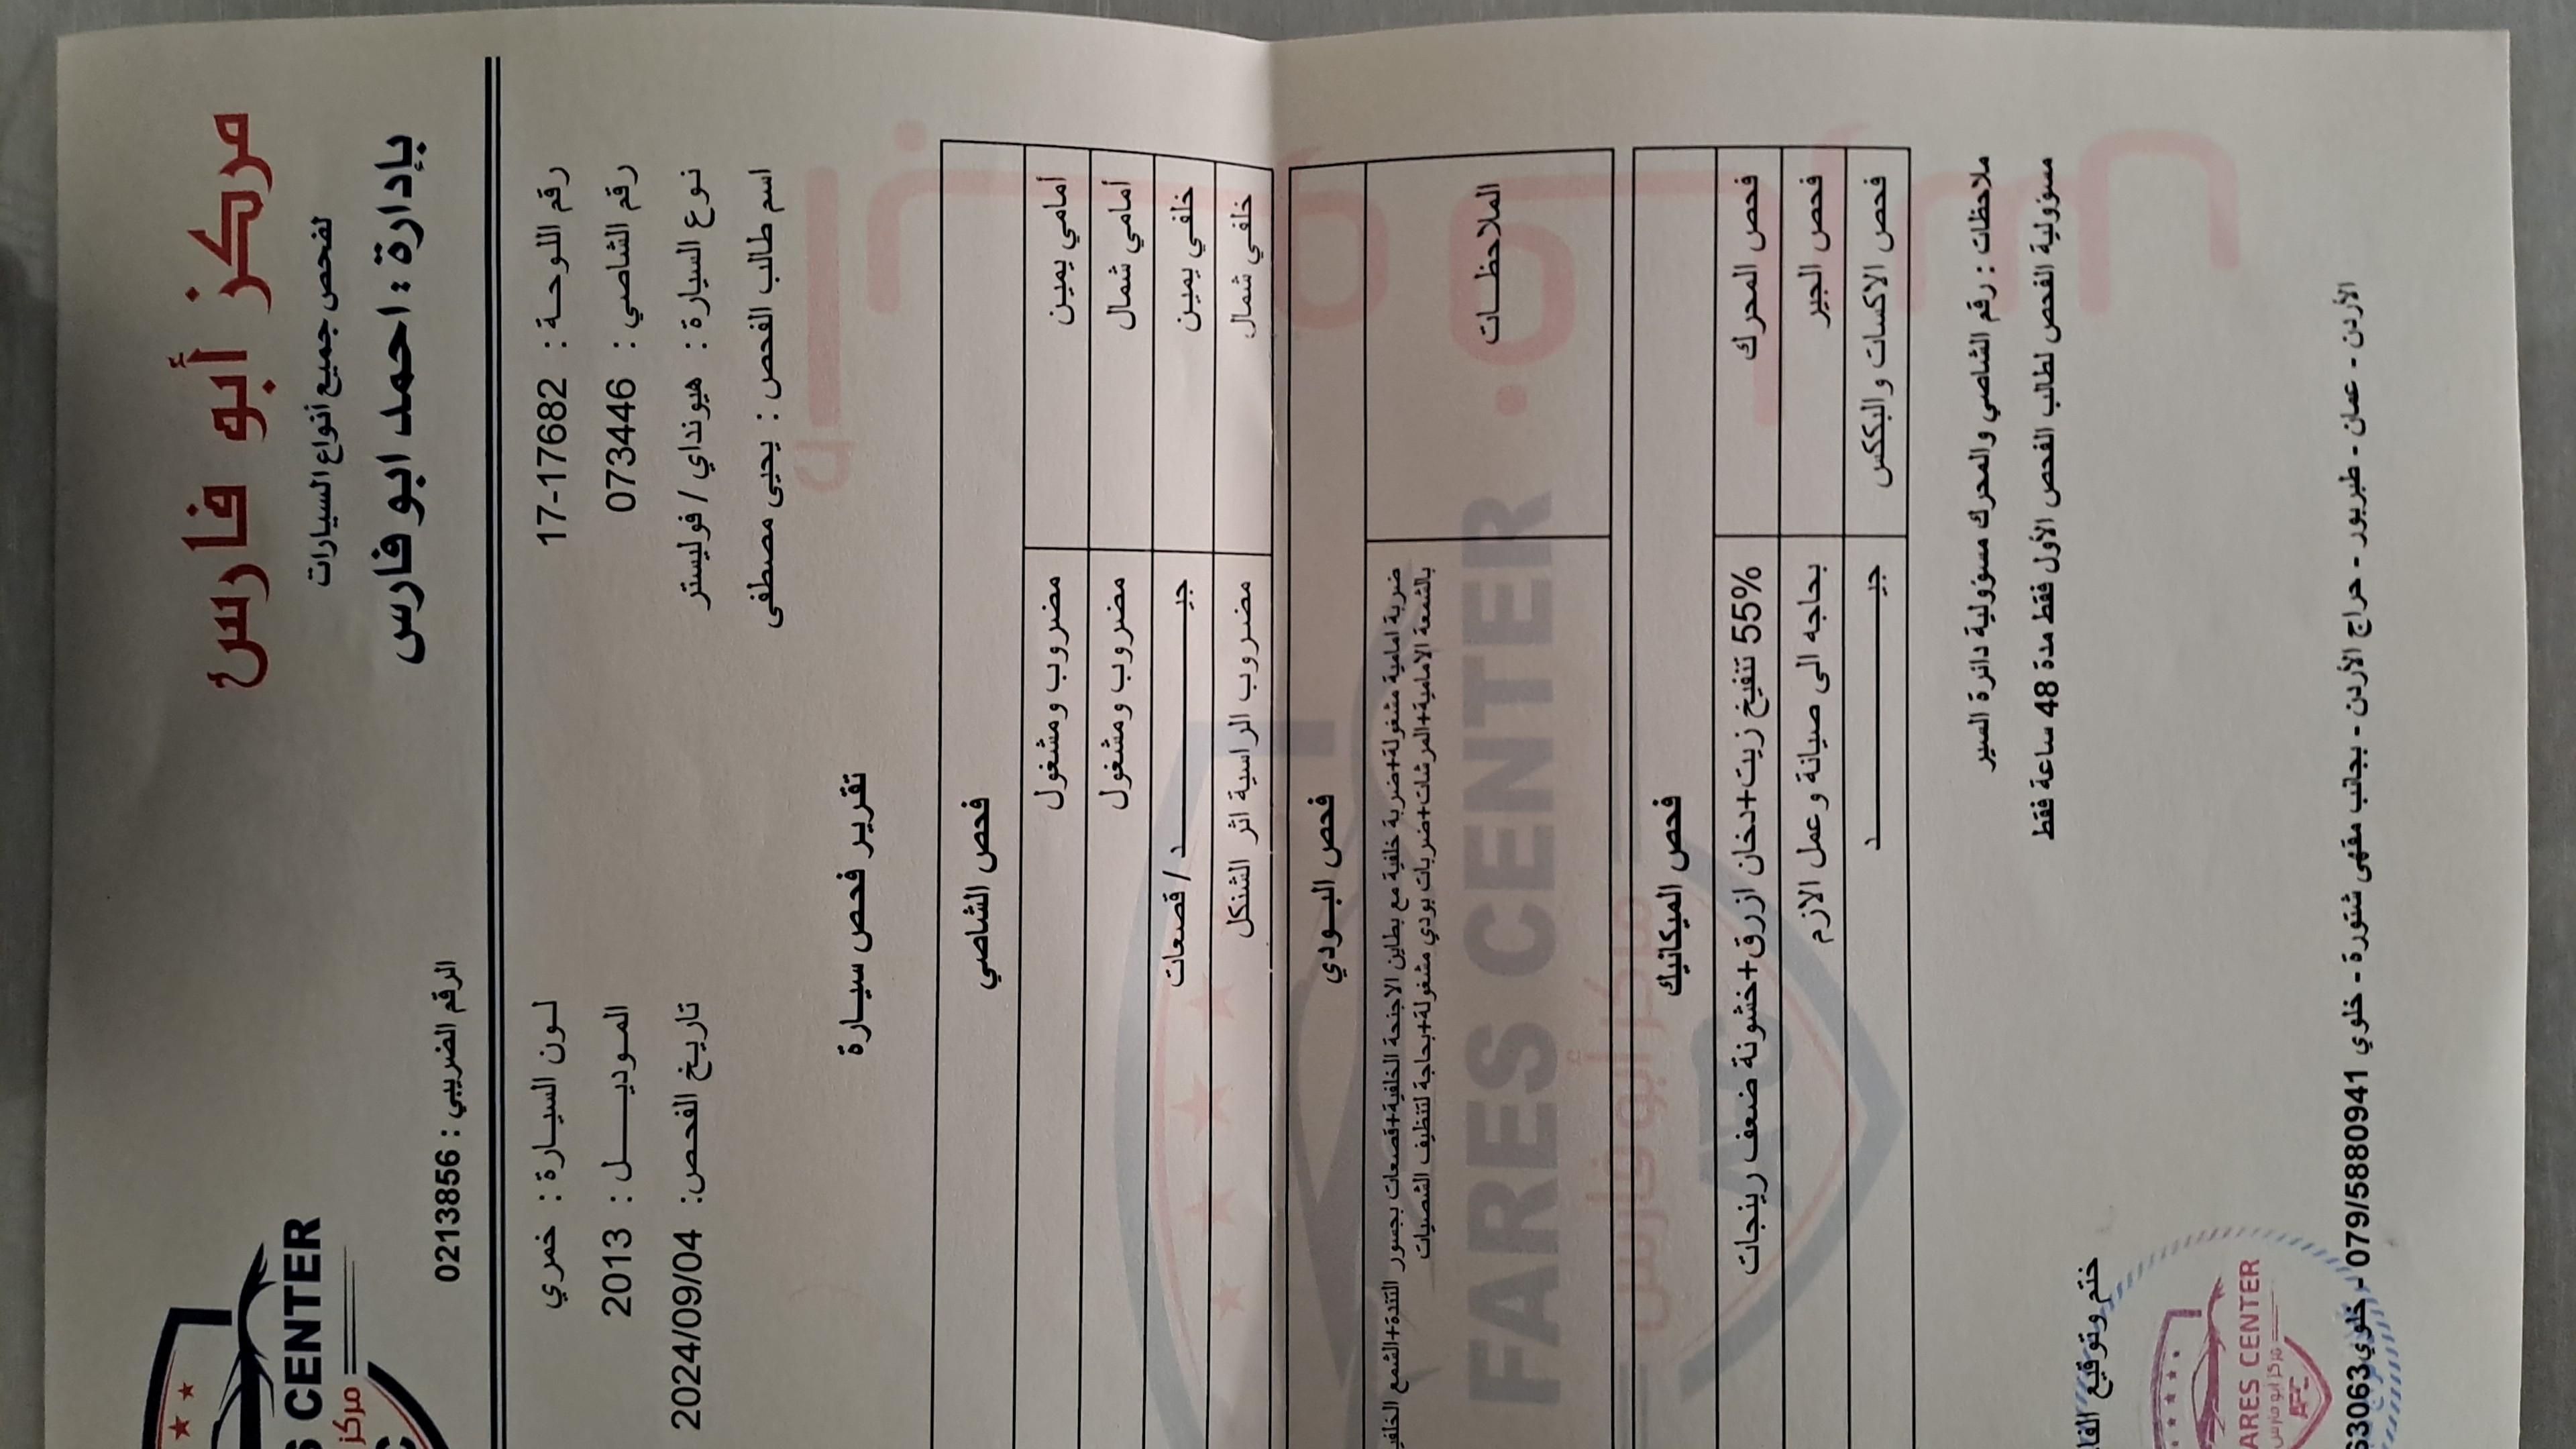 مركز أبو فارس
لفحص جميع أنواع السيارات
بإدارة : احمد ابو فارس
CENTER
مركز
الرقم الضريبي : 0213856
رقم اللوحة : 17-17682
لون السيارة : خمري
رقم الشاصي : 073446
الموديل : 2013
نوع السيارة : هيونداي / فوليستر
تاريخ الفحص: 2024/09/04
اسم طالب الفحص : يحيى مصطفى
تقرير فحص سيارة
فحص الشاصي
أمامي يمين مضروب ومشغول
أمامي شمال مضروب ومشغول
خلفي يمين جيد / قصعات
خلفي شمال مضروب الراسية اثر الشنكل
فحص البودي
الملاحظات
ضربة امامية مشغولة+ضربة خلفية مع بطاين الاجنحة الخلفية+قصعات بجسور التندة+الشمع
بالشمعة الامامية+المرشات+ضربات بودي مشغولة+بحاجة لتنظيف الشصيات
FARES CENTER
مركز أبو فارس
AFC
فحص الميكانيك
فحص المحرك 55% تنفيخ زيت+دخان ازرق+خشونة ضعف رينجات
فحص الجير بحاجه الى صيانة وعمل الازم
فحص الاكسات والبككس جيد
ملاحظات : رقم الشاصي والمحرك مسؤولية دائرة السير
مسؤولية الفحص لطالب الفحص الأول فقط مدة 48 ساعة فقط
ختم وتوقيع
ARES CENTER
مركز ابو فارس
AFC
الأردن - عمان - طبربور - حراج الأردن - بجانب مقهى شتورة - خلوي 079/5880941 - خلوي 63063